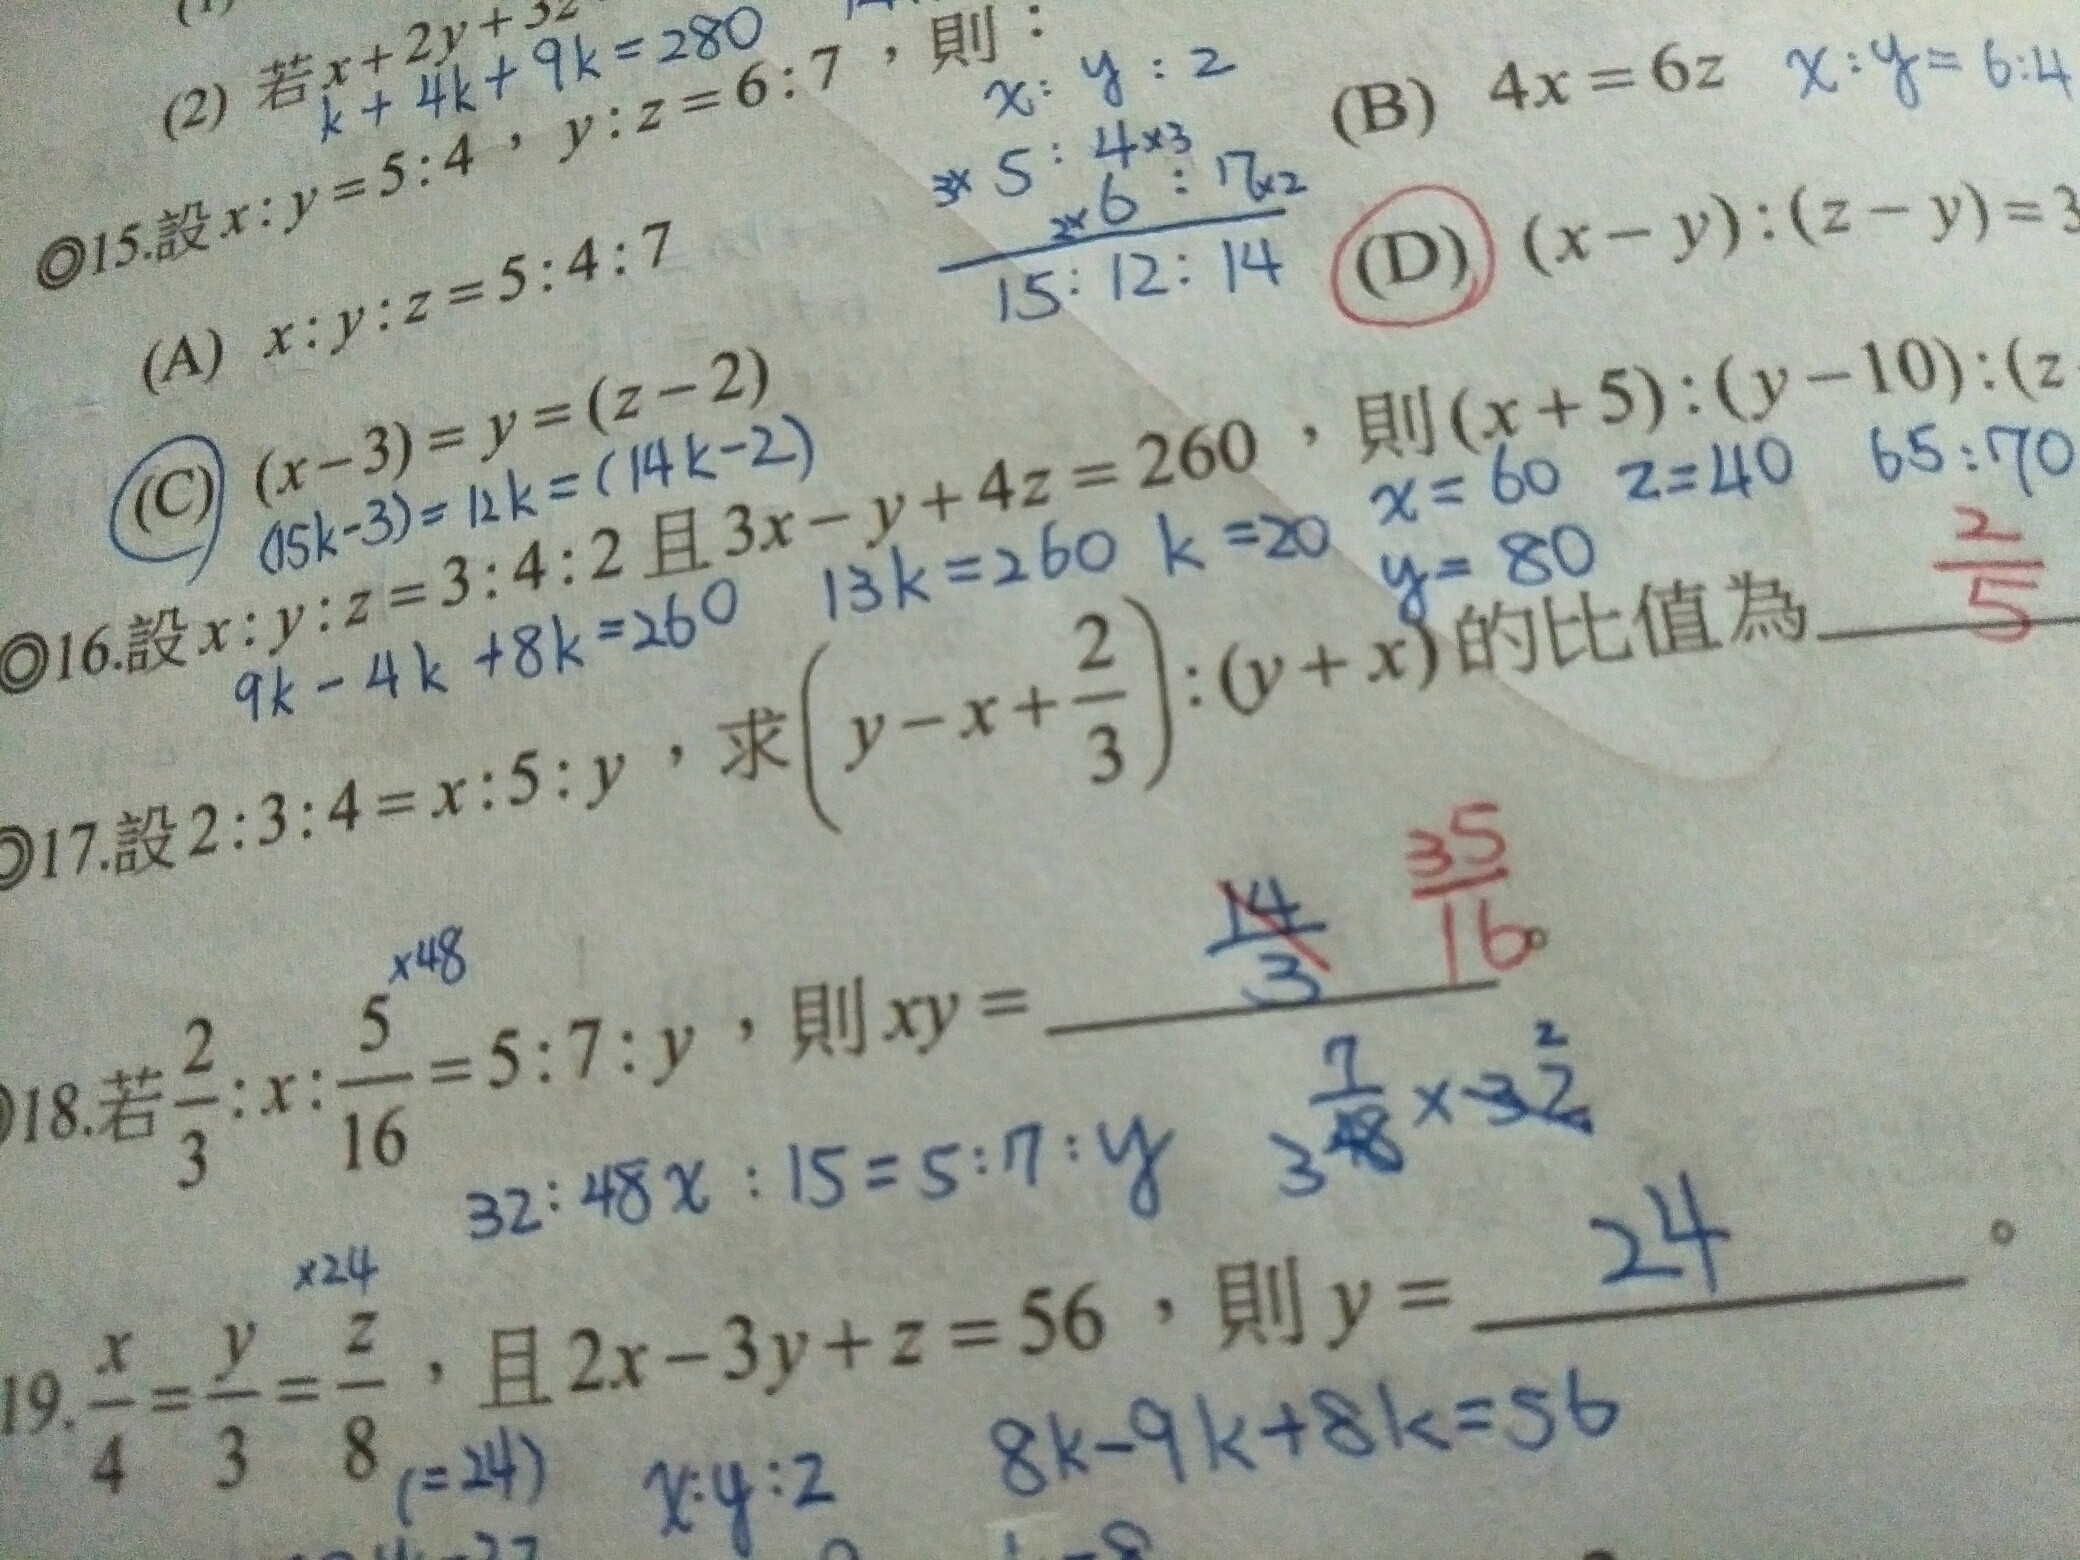 (2) 若x+2y+3z
k+4k+9k=280
◎15.設x:y=5:4,y:z=6:7,則:
x:y:z
3×5:4×3
2×6:7×2
15:12:14
(A) x:y:z=5:4:7
(B) 4x=6z x:y=6:4
(C) (x-3)=y=(z-2)
(15k-3)=12k=(14k-2)
(D) (x-y):(z-y)=3
◎16.設x:y:z=3:4:2且3x-y+4z=260,則(x+5):(y-10):(z
9k-4k+8k=260 13k=260 k=20 x=60 z=40 65:70
y=80
◎17.設2:3:4=x:5:y,求(y-x+2/3):(y+x)的比值為 2/5
18.若2/3:x:5/16=5:7:y,則xy= 14/3 35/16。
×48
32:48x:15=5:7:y
7
48×32
3 2
19.x/4=y/3=z/8,且2x-3y+z=56,則y= 24 。
×24
(=24) x:y:z 8k-9k+8k=56